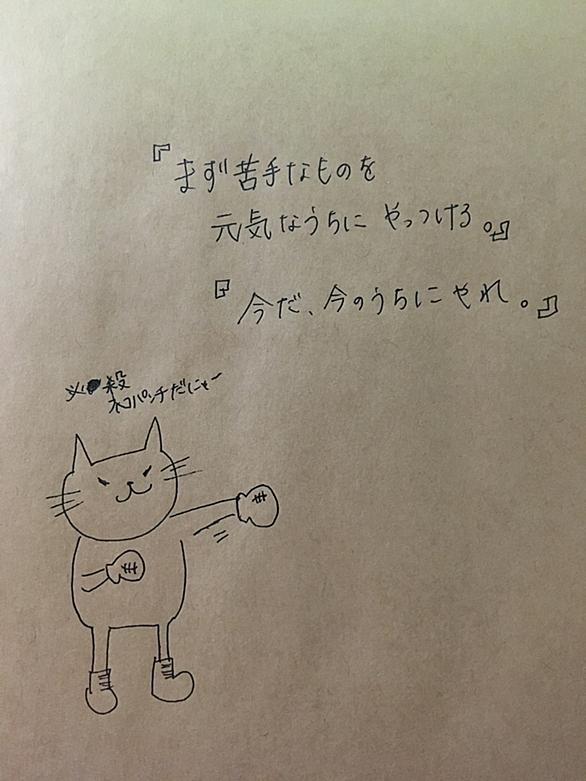 『まず苦手なものを
元気なうちに やっつける。』
『今だ、今のうちにやれ。』
必殺
ネコパンチだにゃー